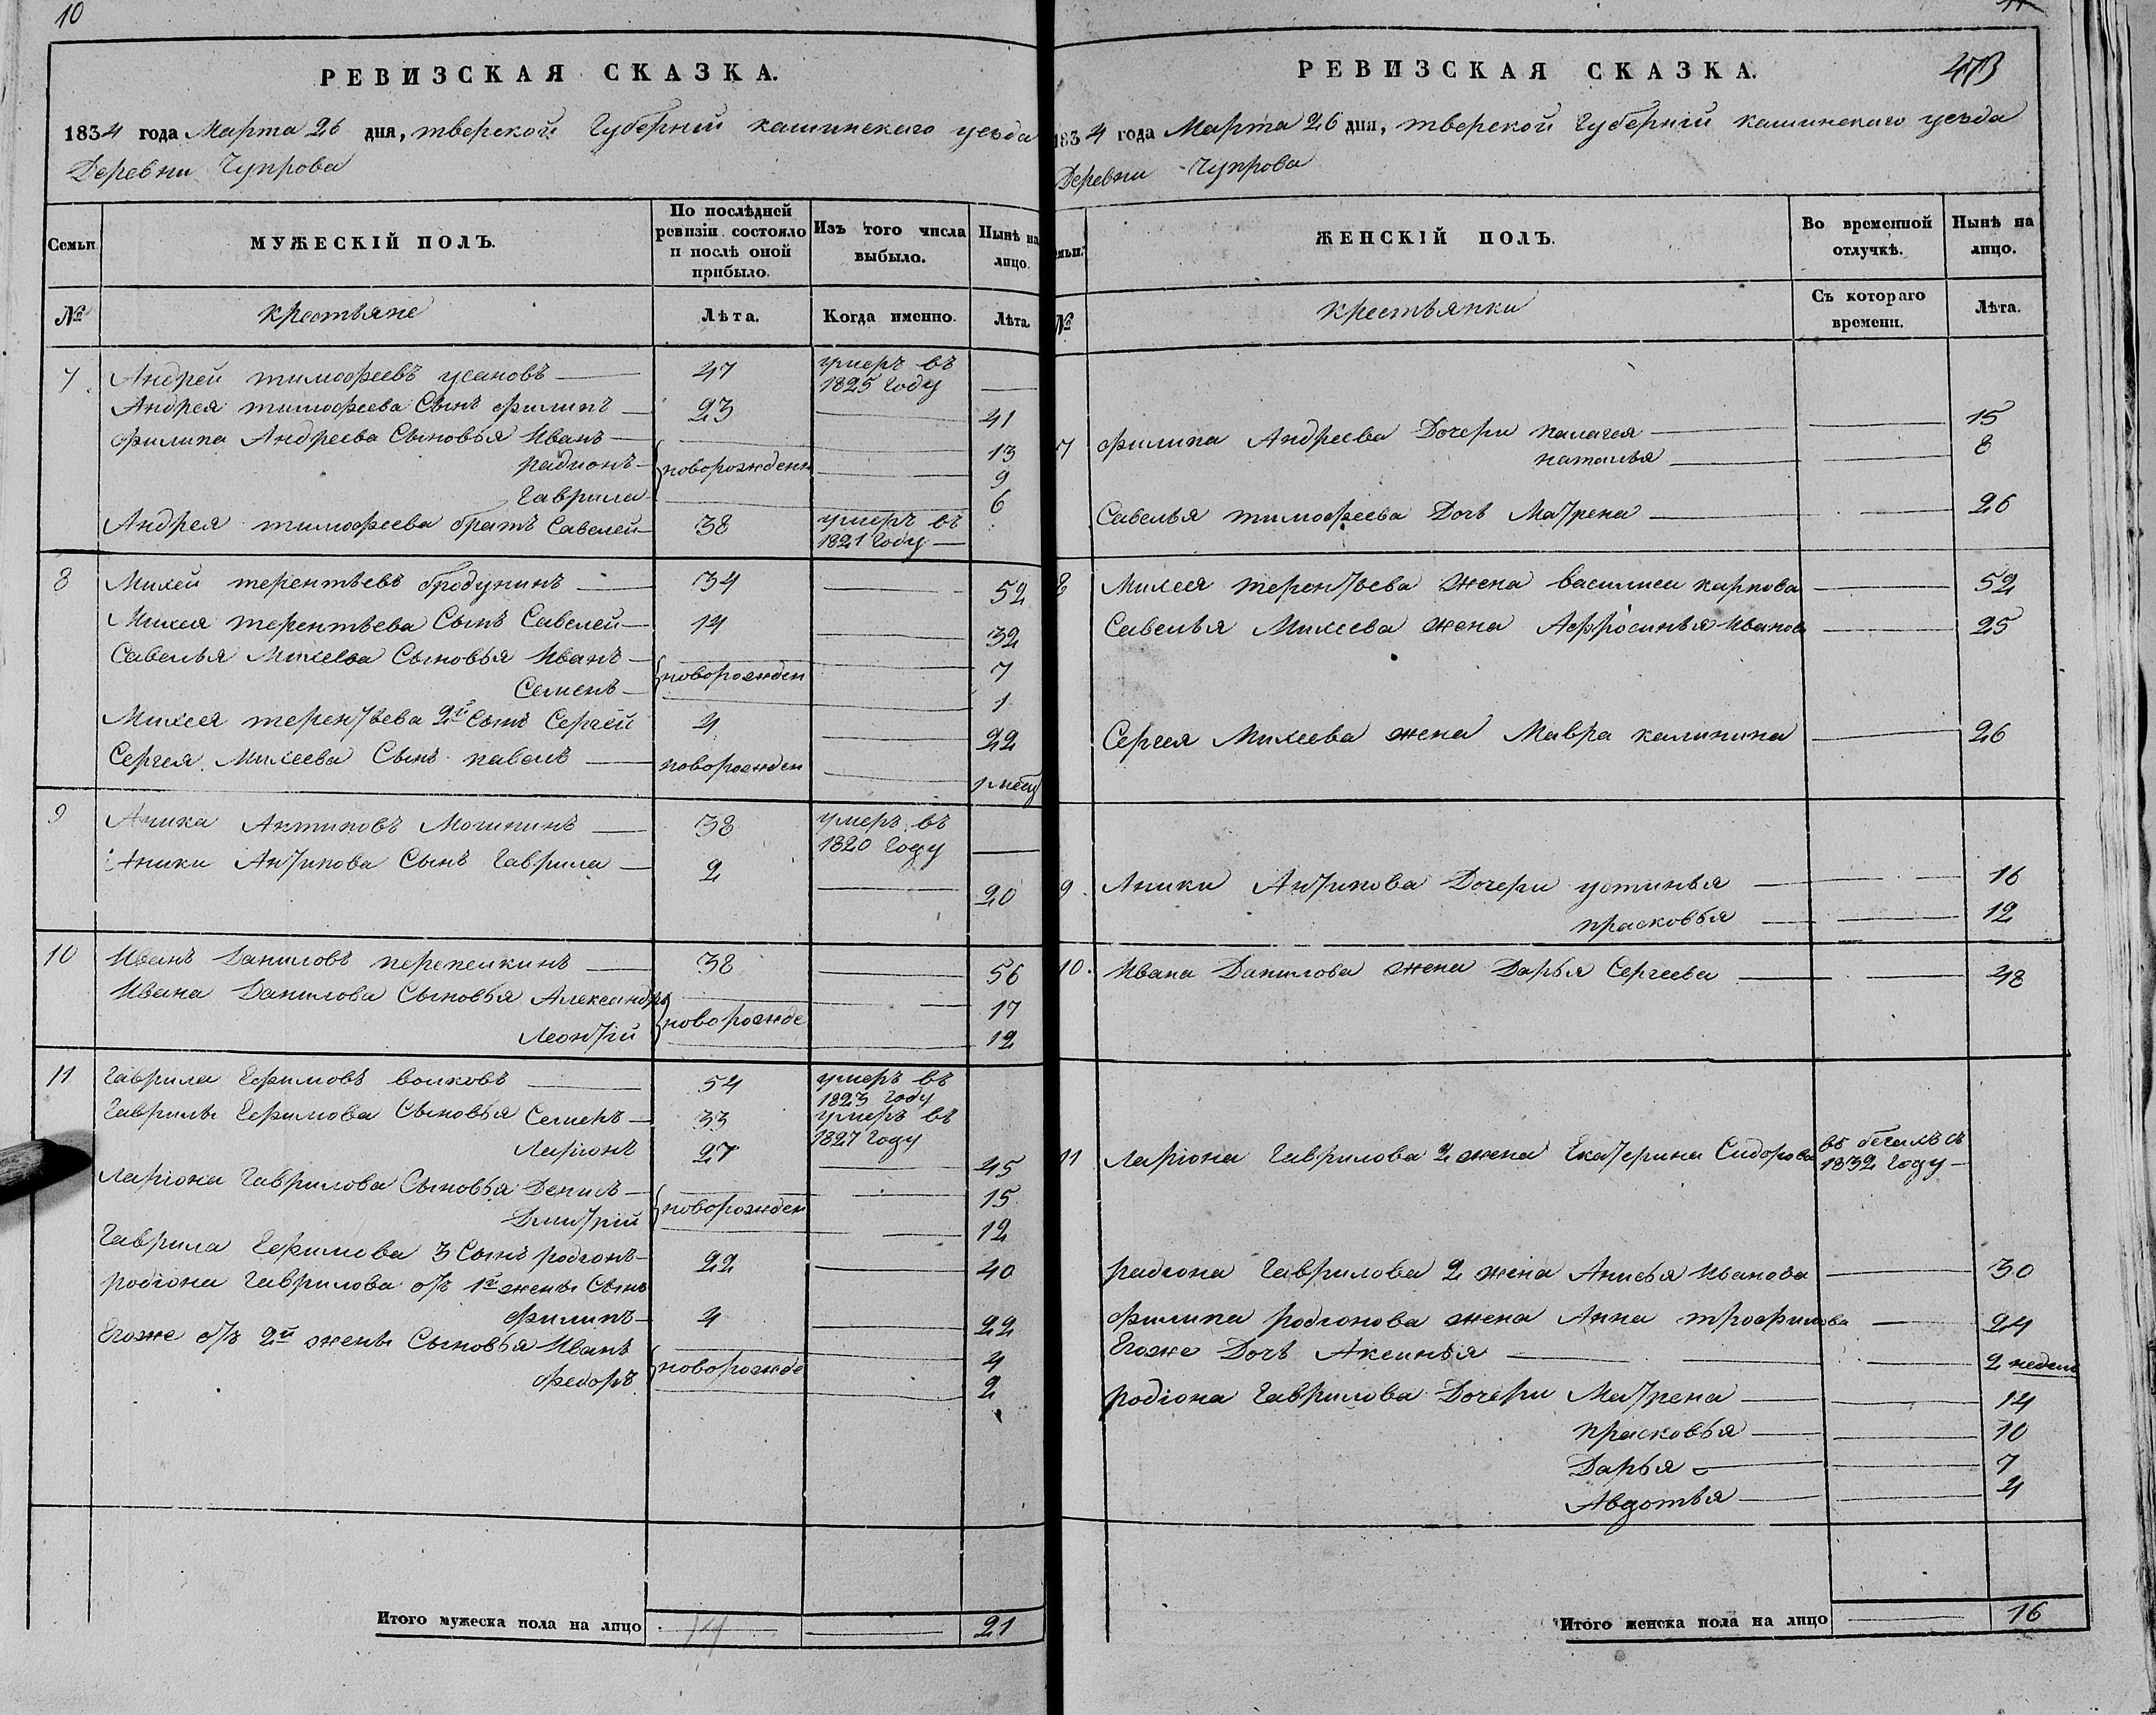 10
РЕВИЗСКАЯ СКАЗКА.
1834 года Марта 26 дня, тверской Губернiи кашинскаго уезда
Деревни Чупрова
Семьи.
МУЖЕСКІЙ ПОЛЪ.
По послѣдней ревизіи состояло и послѣ оной прибыло.
Изъ того числа выбыло.
Нынѣ на лицо.
№
крестьяне
Лѣта.
Когда именно.
Лѣта.
7 Андрей тимофеевъ усановъ 47 умеръ въ 1825 году
Андрея тимофеева Сынъ филипъ 23 41
филипа Андреева Сыновья Иванъ 13
радионъ новорожденн 9
Гаврила 6
Андрея тимофеева братъ Савелей 38 умеръ въ 1821 году
8 Михей терентьевъ бродунинъ 34 52
Михея терентьева Сынъ Савелей 14 32
Савелья Михеева Сыновья Иванъ 7
Семенъ новорожден 1
Михея терентьева 2й Сынъ Сергей 4 22
Сергея Михеева Сынъ павелъ новорожден 1 месц
9 Аника Антиповъ Мошнинъ 38 умеръ въ 1820 году
Аники Антипова Сынъ Гаврила 2 20
10 Иванъ Даниловъ перепелкинъ 38 56
Ивана Данилова Сыновья Александръ 17
Леонтiй новорожде 12
11 Гаврила Ефимовъ волковъ 54 умеръ въ 1823 году
Гаврилы Ефимова Сыновья Семенъ 33 умеръ въ 1827 году
Ларiонъ 27 45
Ларiона Гаврилова Сыновья Денисъ 15
Дмитрiй новорожден 12
Гаврила Ефимова 3 Сынъ родiонъ 22 40
родiона Гаврилова отъ 1й жены Сынъ
филипъ 4 22
Егоже отъ 2й жены Сыновья Иванъ 4
федоръ новорожде 2
Итого мужеска пола на лицо 14 21
РЕВИЗСКАЯ СКАЗКА.
473
1834 года Марта 26 дня, тверской Губернiй кашинскаго уезда
Деревни Чупрова
ЖЕНСКІЙ ПОЛЪ.
Во временной отлучкѣ.
Нынѣ на лицо.
№
крестьянки
Съ котораго времени.
Лѣта.
7 филипа Андреева Дочери палагея 15
наталья 8
Савелья тимофеева Дочь Матрена 26
8 Михея терентьева жена василиса карпова 52
Савелья Михеева жена Аффросинья Иванов 25
Сергея Михеева жена Мавра калинина 26
9 Аники Антипова Дочери устинья 16
прасковья 12
10. Ивана Данилова жена Дарья Сергеева 48
11 Ларiона Гаврилова 2 жена Екатерина Сидорова въ бегахъ съ 1832 году
радiона Гаврилова 2 жена Анисья Иванова 30
филипа родiонова жена Анна трофимова 24
Егоже Дочь Аксинья 2 недели
родiона Гаврилова Дочери Матрена 14
прасковья 10
Дарья 7
Авдотья 4
Итого женска пола на лицо 16